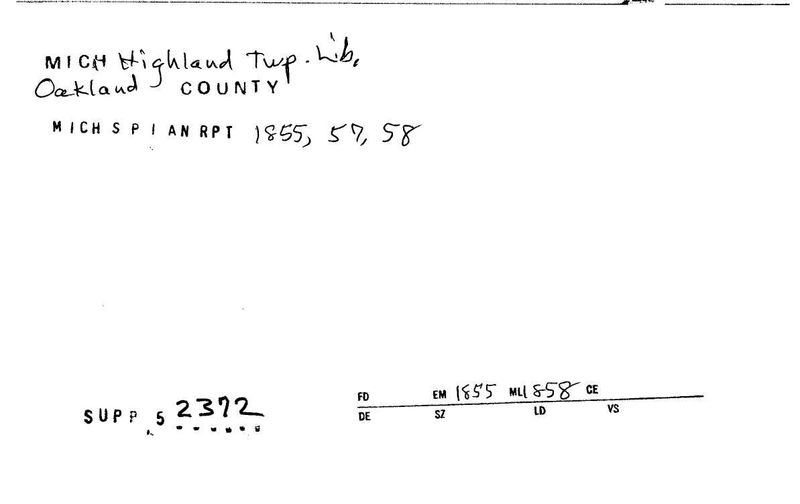 MICH Highland Twp. Lib,
Oakland COUNTY
MICH S P I AN RPT 1855, 57, 58
FD EM 1855 ML 1858 CE
SUPP 5 2372
DE SZ LD VS